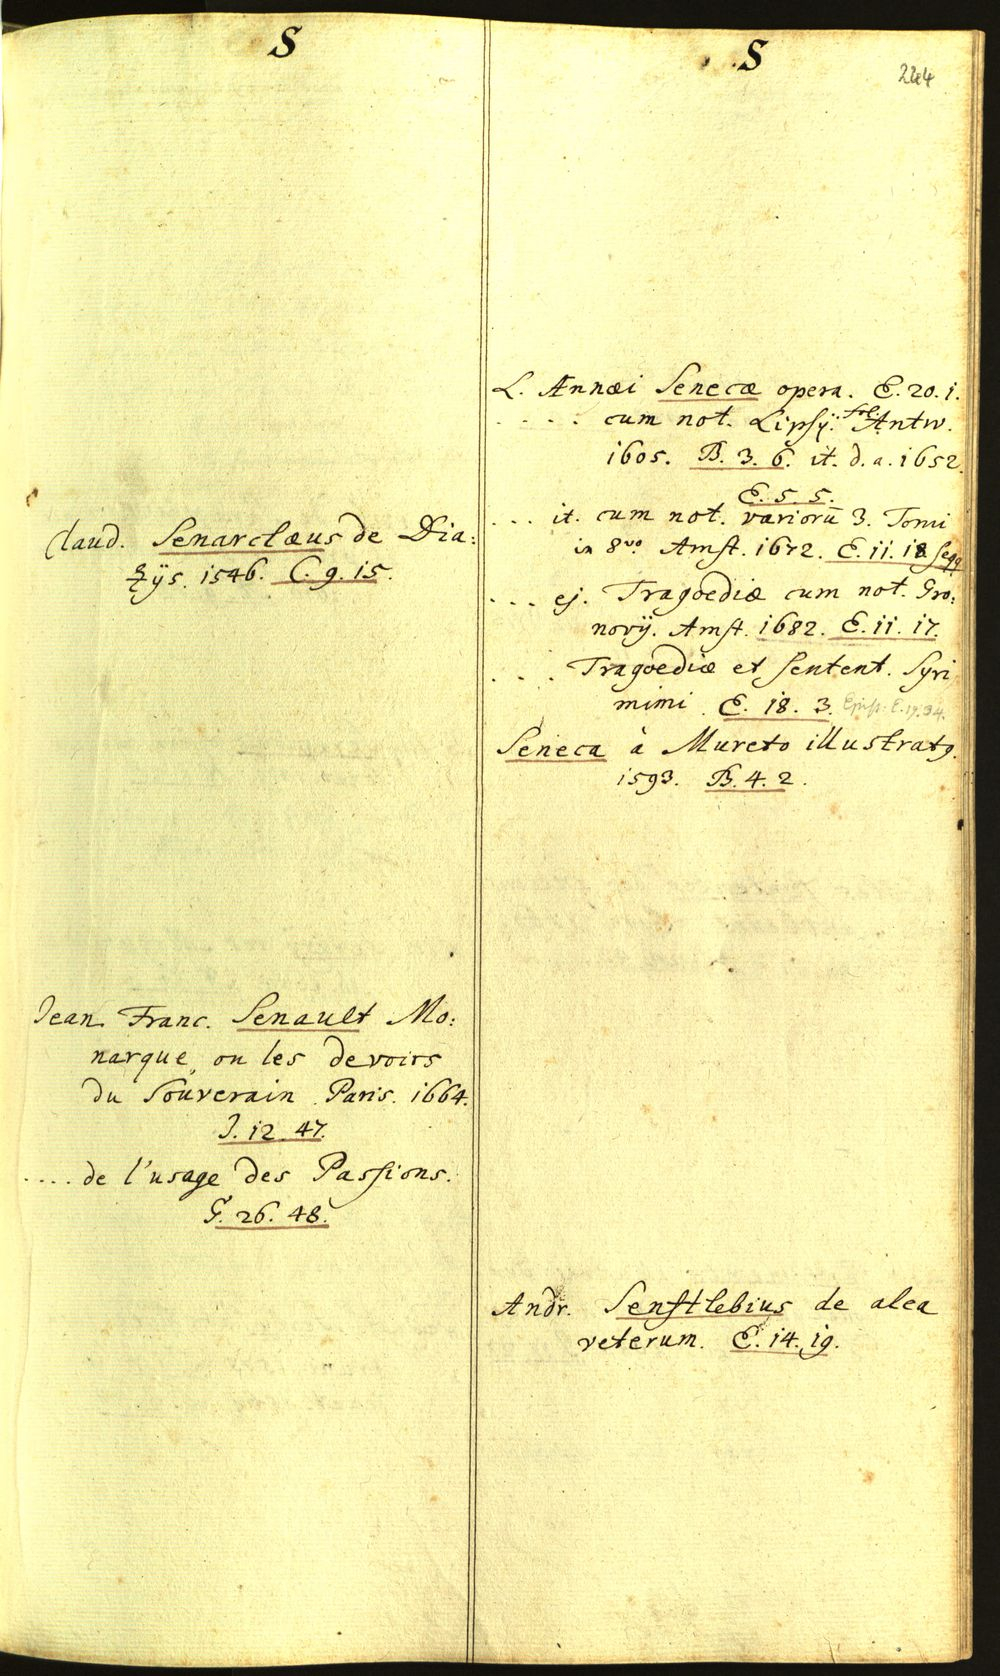 S
Claud. Senarclæus de Dia:
zijs. 1546. C. 9. 15.
Jean Franc. Senault Mo:
narque, ou les devoirs
du Souverain Paris. 1664.
J. 12. 47.
.... de l'usage des Passions.
G. 26. 48.
S
244
L. Annæi Senecæ opera. E. 20. 1.
.... cum not. Lipsij. fol. Antw.
1605. B. 3. 6. it. d. a. 1652.
E. 5. 5.
... it. cum not. varioru̅ 3. Tomi
in 8vo. Amst. 1672. E. 11. 18 seqq
... ej. Tragoediæ cum not. Gro:
novij. Amst. 1682. E. 11. 17.
.... Tragoediæ et Sentent. Syri
mimi. E. 18. 3. Epist. E. 19. 34.
Seneca à Mureto illustratꝰ.
1593. B. 4. 2.
Andr. Senftlebius de alea
veterum. E. 14. 19.